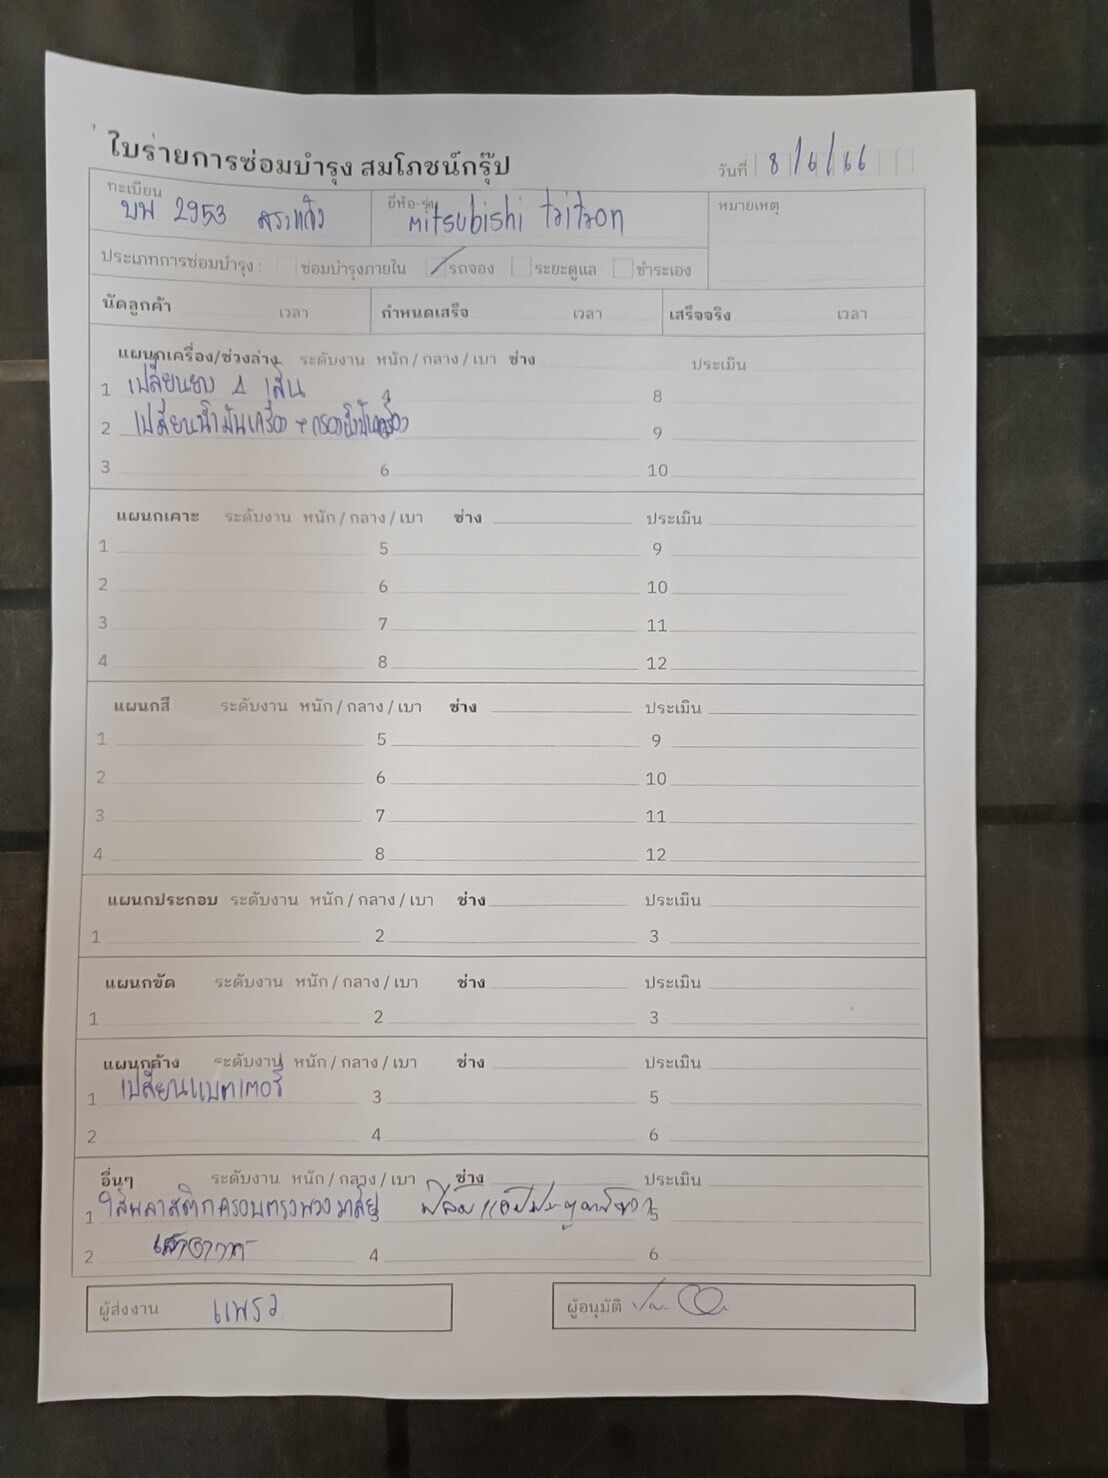 ใบรายการซ่อมบำรุง สมโภชน์กรุ๊ป
วันที่ 8/6/66
ทะเบียน บพ 2953 สระแก้ว ยี่ห้อ-รุ่น mitsubishi tritron หมายเหตุ
ประเภทการซ่อมบำรุง : ซ่อมบำรุงภายใน รถจอง ระยะดูแล ชำระเอง
นัดลูกค้า เวลา กำหนดเสร็จ เวลา เสร็จจริง เวลา
แผนกเครื่อง/ช่วงล่าง ระดับงาน หนัก / กลาง / เบา ช่าง ประเมิน
1 เปลี่ยนยาง 4 เส้น 4 8
2 เปลี่ยนน้ำมันเครื่อง + กรองน้ำมันเครื่อง 9
3 6 10
แผนกเคาะ ระดับงาน หนัก / กลาง / เบา ช่าง ประเมิน
1 5 9
2 6 10
3 7 11
4 8 12
แผนกสี ระดับงาน หนัก / กลาง / เบา ช่าง ประเมิน
1 5 9
2 6 10
3 7 11
4 8 12
แผนกประกอบ ระดับงาน หนัก / กลาง / เบา ช่าง ประเมิน
1 2 3
แผนกขัด ระดับงาน หนัก / กลาง / เบา ช่าง ประเมิน
1 2 3
แผนกล้าง ระดับงาน หนัก / กลาง / เบา ช่าง ประเมิน
1 เปลี่ยนแบตเตอรี่ 3 5
2 4 6
อื่นๆ ระดับงาน หนัก / กลาง / เบา ช่าง ประเมิน
1 ใส่พลาสติกครอบตรงพวงมาลัย 3 5
2 เสาอากาศ 4 6
ผู้ส่งงาน แพรว
ผู้อนุมัติ